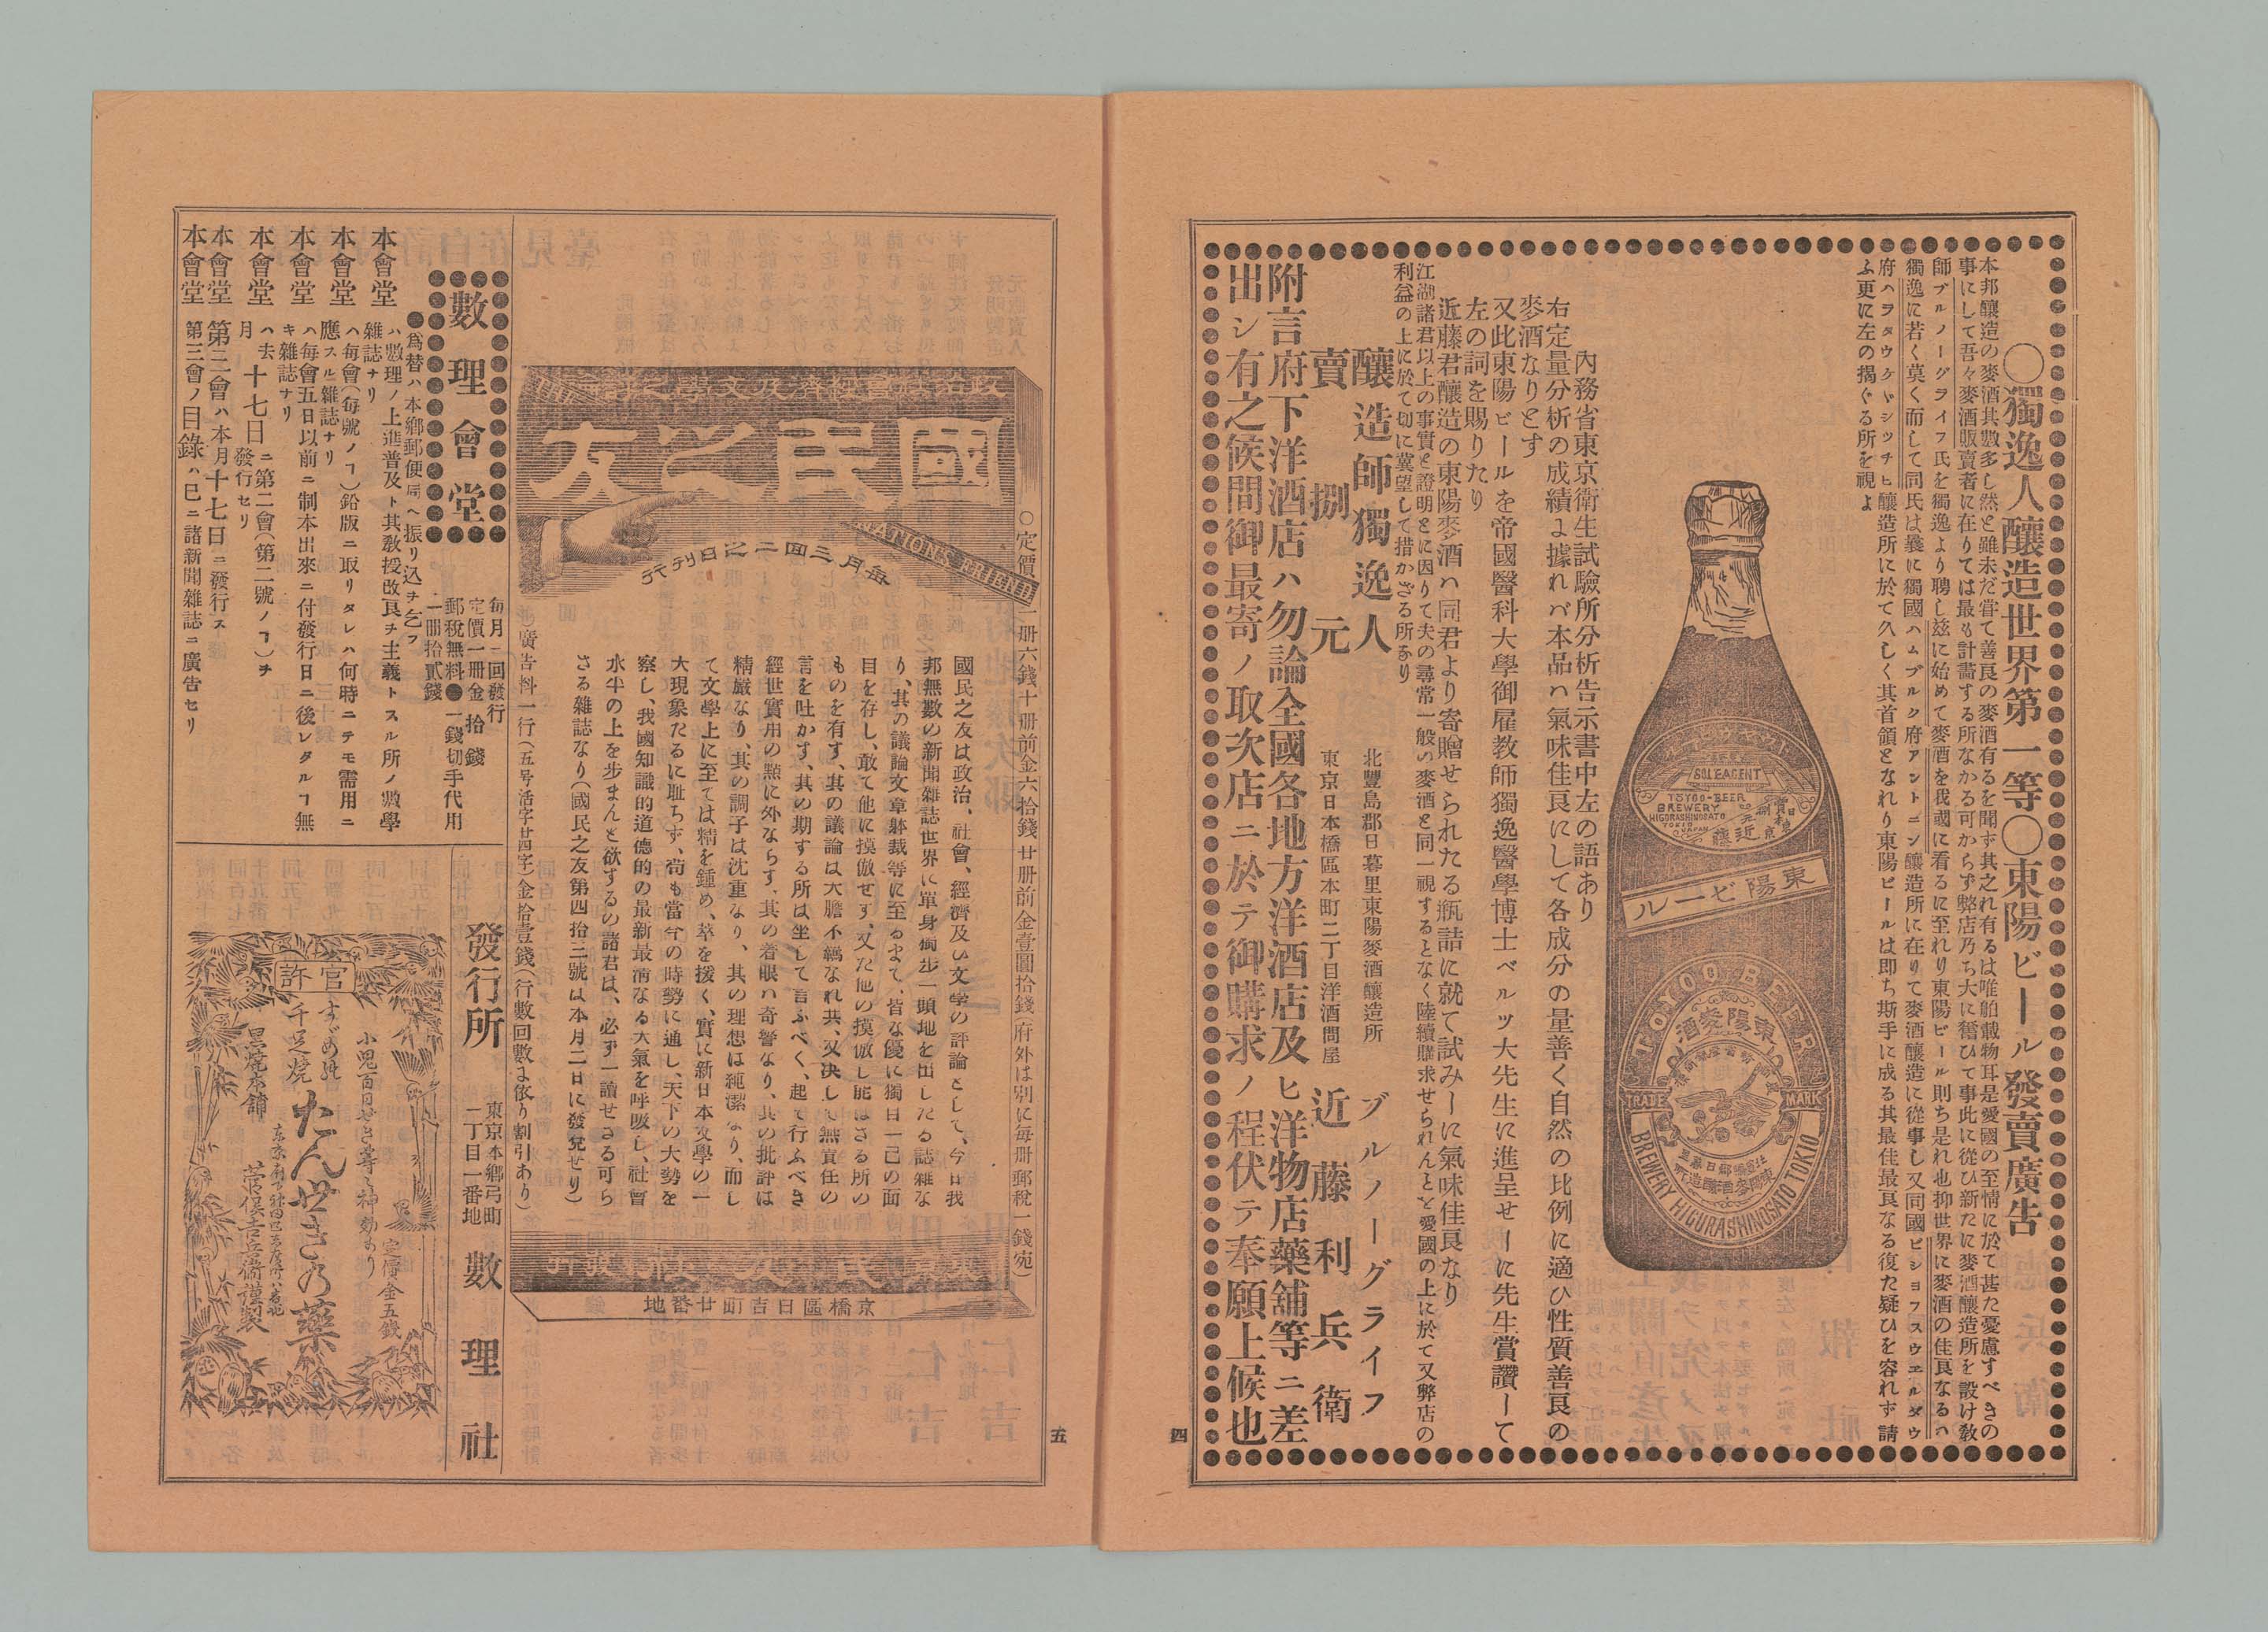 ○獨逸人釀造世界第一等○東陽ビール發賣廣告
本邦釀造の麥酒其數多し然と雖未だ甞て善良の麥酒有るを聞ず其之れ有るは唯舶載物耳是愛國の至情に於て甚た憂慮すべきの
事にして吾々麥酒販賣者に在りては最も計畵する所なかる可からず弊店乃ち大に奮ひて事此に從ひ新たに麥酒釀造所を設け敎
師ブルノーグライフ氏を獨逸より聘し玆に始めて麥酒を我國に看るに至れり東陽ビール則ち是れ也抑世界に麥酒の佳良なるハ
獨逸に若く莫く而して同氏は曩に獨國ハムブルク府アントニン釀造所に在りて麥酒釀造に從事し又同國ビショフスウエルダウ
府ハヲタウケャシッチヒ釀造所に於て久しく其首領となれり東陽ビールは即ち斯手に成る其最佳最良なる復た疑ひを容れず請
ふ更に左の揭ぐる所を視よ
SOLE AGENT
TOYOO-BEER
BREWERY
HIGURASHINOSATO
TOKIO
JAPAN
東陽ビール
TOYOO BEER
東陽麥酒
TRADE MARK
BREWERY HIGURASHINOSATO TOKIO
內務省東京衛生試驗所分析告示書中左の語あり
右定量分析の成績ょ據れバ本品ハ氣味佳良にして各成分の量善く自然の比例に適ひ性質善良の
麥酒なりとす
又此東陽ビールを帝國醫科大學御雇敎師獨逸醫學博士ベルツ大先生に進呈せーに先生賞讚ーて
左の詞を賜りたり
近藤君釀造の東陽麥酒ハ同君より寄贈せられたる瓶詰に就て試みーに氣味佳良なり
江湖諸君以上の事實と證明とに因りて夫の尋常一般の麥酒と同一視するとなく陸續購求せられんとを愛國の上に於て又弊店の
利益の上に於て切に冀望して措かざる所なり
釀造師獨逸人 北豐島郡日暮里東陽麥酒釀造所 ブルノーグライフ
賣捌元 東京日本橋區本町二丁目洋酒問屋 近藤利兵衛
附言府下洋酒店ハ勿論全國各地方洋酒店及ヒ洋物店藥舖等ニ差
出シ有之候間御最寄ノ取次店ニ於テ御購求ノ程伏テ奉願上候也
四
五
○定價一册六錢十册前金六拾錢廿册前金壹圓拾錢(府外は別に每册郵稅一錢宛)
國民之友
NATION'S FRIEND
每月三回二之日刊行
國民之友は政治、社會、經濟及ひ文學の評論として、今日我
邦無數の新聞雜誌世界に單身獨步一頭地を出したる雜誌な
り、其の議論文章躰裁等に至るまて、皆な優に獨自一己の面
目を存し、敢て他に摸倣せす、又た他の摸倣し能はさる所の
ものを有す、其の議論は大膽不羈なれ共、又決して無責任の
言を吐かす、其の期する所は坐して言ふべく、起て行ふべき
經世實用の點に外ならす、其の着眼ハ奇警なり、其の批評は
精嚴なり、其の調子は沈重なり、其の理想は純潔なり、而し
て文學上に至ては精を鍾め、萃を拔く、實に新日本文學の一
大現象たるに耻ちす、苟も當今の時勢に通し、天下の大勢を
察し、我國知識的道德的の最新最淸なる大氣を呼吸し、社會
水半の上を步まんと欲するの諸君は、必す一讀せさる可ら
さる雜誌なり(國民之友第四拾三號は本月二日に發兌せり)
京橋區日吉町廿番地
廣告料一行(五号活字廿四字)金拾壹錢(行數回數ょ依り割引あり)
數理會堂
每月二回發行
定價一册金拾錢
郵稅無料●一錢切手代用
一册拾貳錢
●爲替ハ本鄉郵便局ヘ振リ込ヲ乞フ
本會堂ハ數理ノ上進普及ト其敎授改良ヲ主義トスル所ノ數學
雜誌ナリ
本會堂ハ每會(每號ノヿ)鉛版ニ取リタレハ何時ニテモ需用ニ
應スル雜誌ナリ
本會堂ハ每會五日以前ニ制本出來ニ付發行日ニ後レタルヿ無
キ雜誌ナリ
本會堂ハ去月十七日ニ第二會(第二號ノヿ)ヲ
發行セリ
本會堂第三會ハ本月十七日ニ發行ス
本會堂第三會ノ目錄ハ已ニ諸新聞雜誌ニ廣告セリ
發行所 東京本鄉弓町
二丁目一番地 數理社
官許
小兒百日せき等に神効あり 定價金五錢
すゞめ
千疋燒 たんせきの藥
黑燒本舖 菅俣吉兵衛謹製